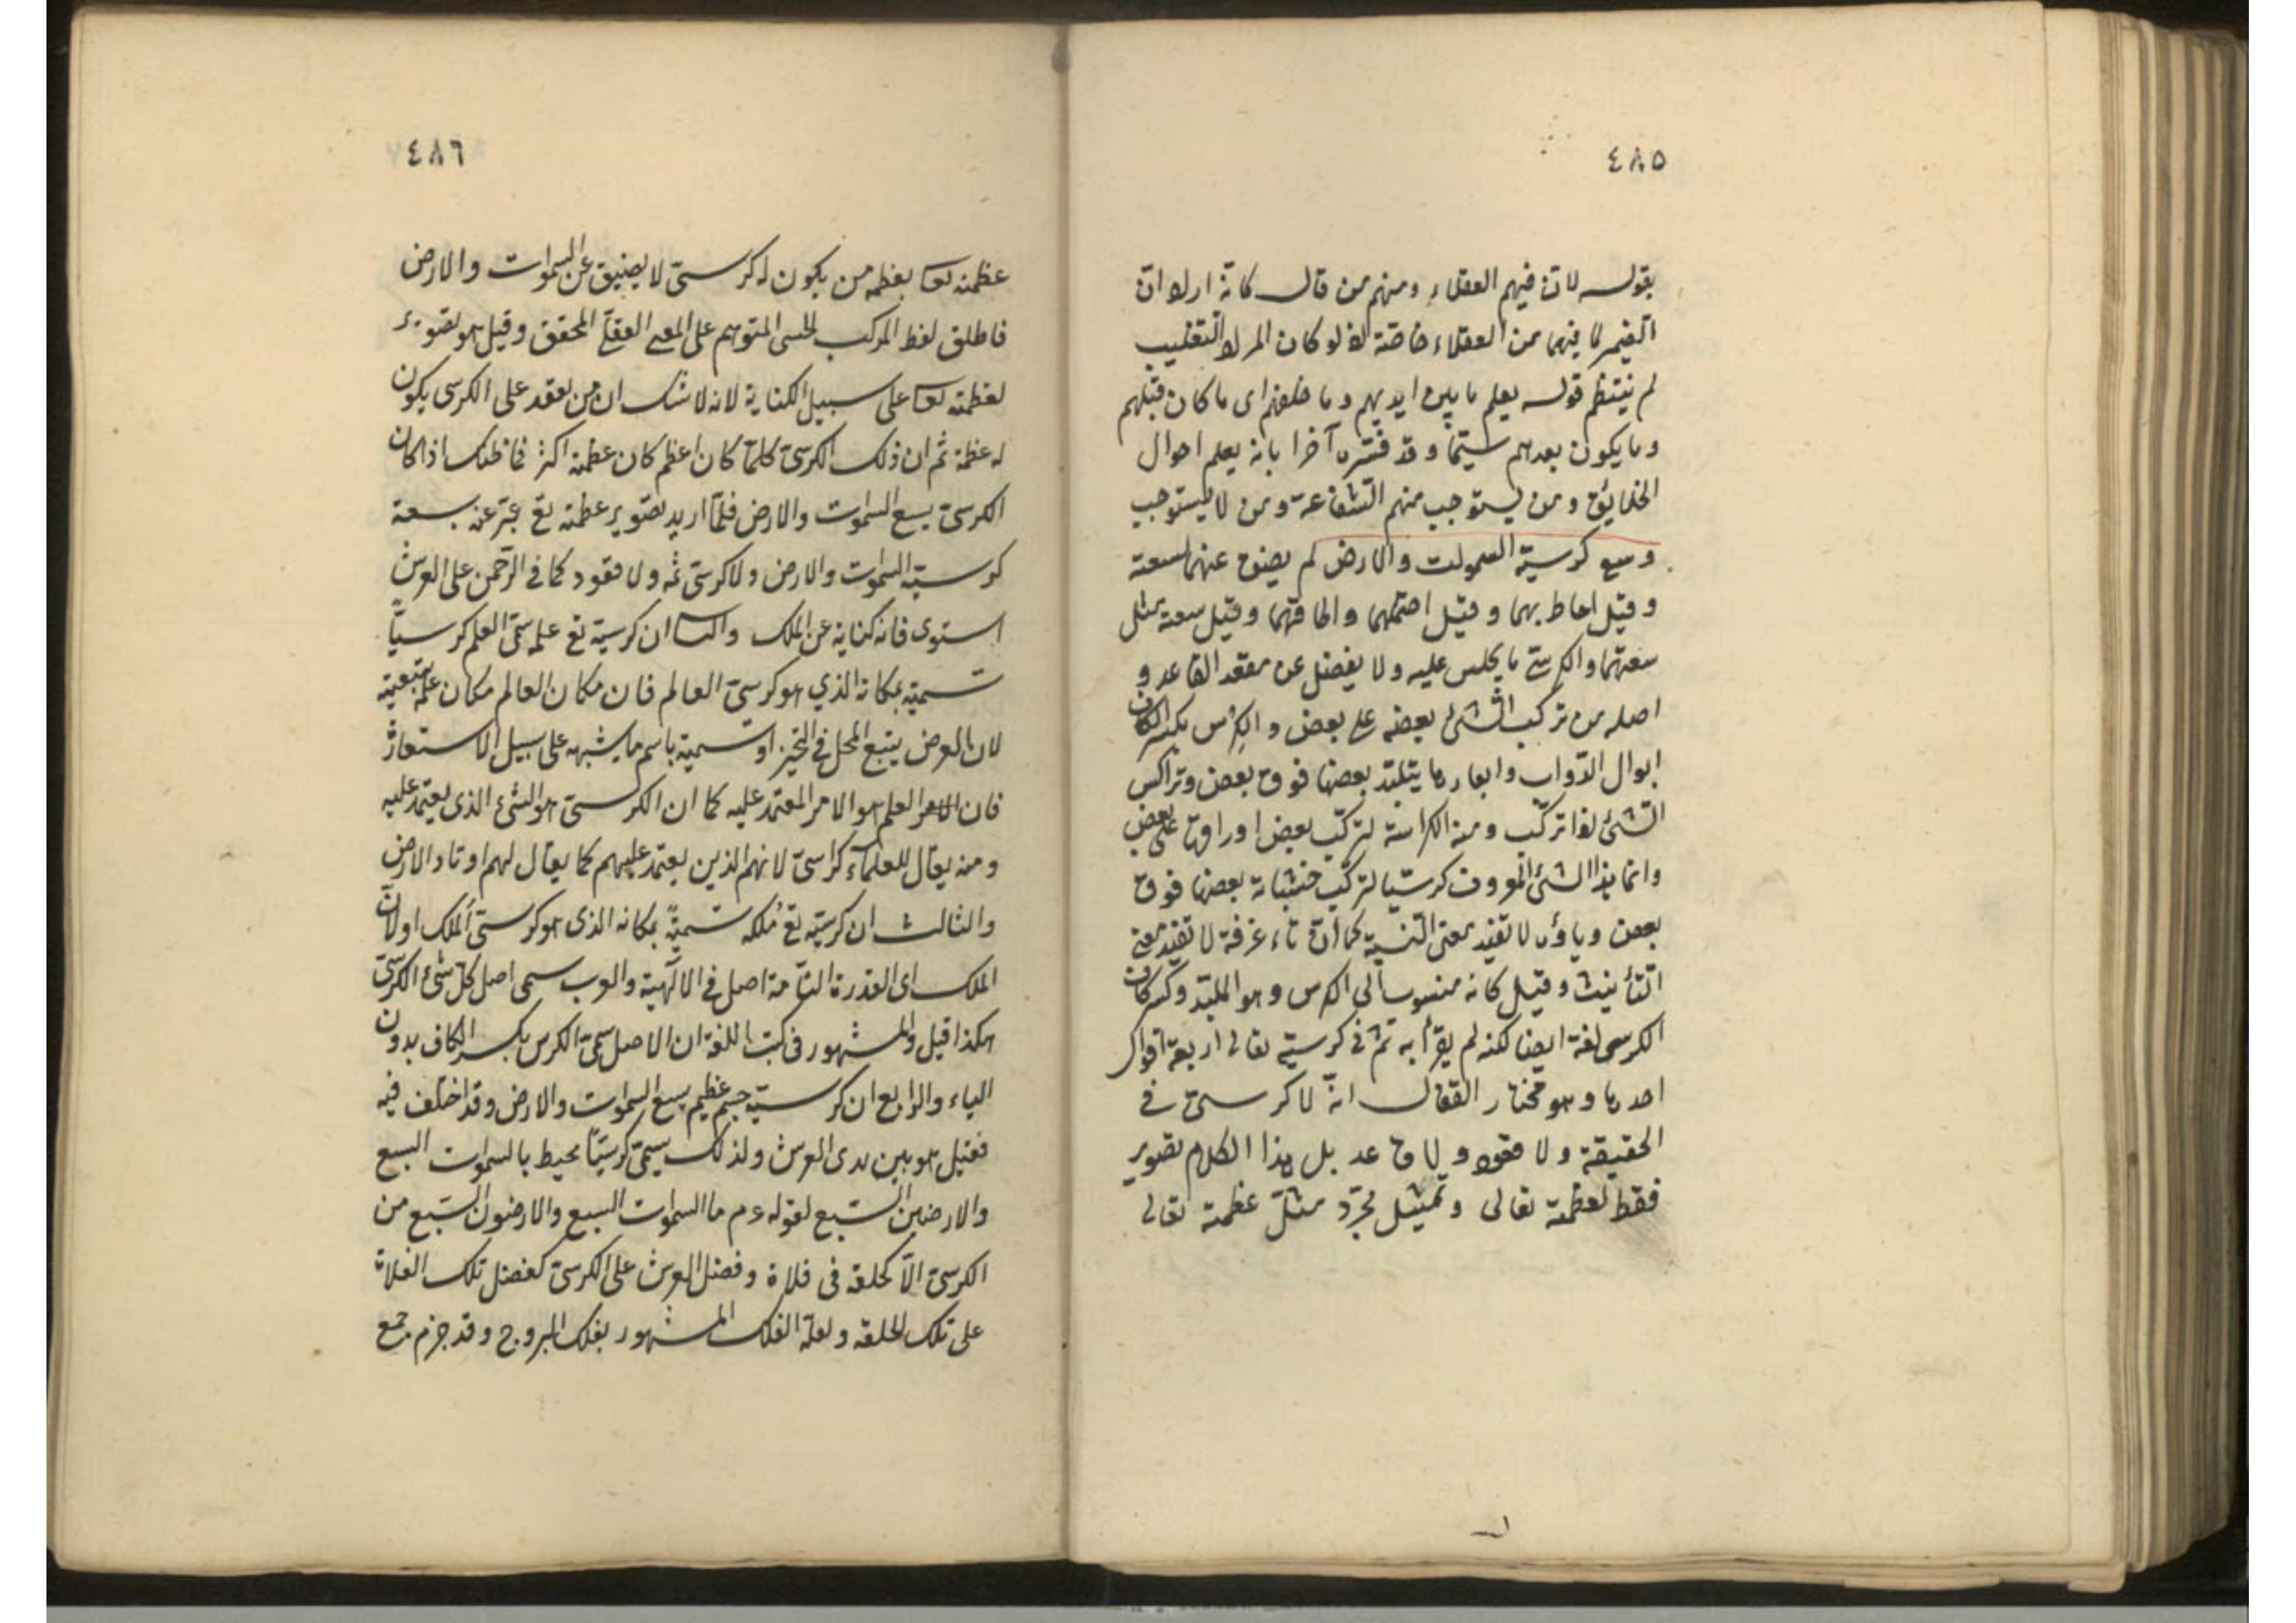 ٤٨٥
بقوله لان فيهم العقلاء ومنهم من قال كانه اراد ان
الضمير لما فيهما من العقلاء خاصة اذ لو كان المراد التغليب
لم ينتظم قوله يعلم ما بين ايديهم وما خلفهم اى ما كان قبلهم
وما يكون بعدهم سيّما وقد فسّره آخرا بانه يعلم احوال
الخلايق ومن يستوجب منهم الشفاعة ومن لا يستوجب
وسع كرسيه السموات والارض لم يضق عنهما لسعته
وقيل احاط بهما وقيل احتملهما واطاقهما وقيل سعته مثل
سعتهما والكرسيّ ما يجلس عليه ولا يفضل عن مقعد القاعد و
اصله من تركب الشئ بعضه على بعض والكِرْس بكسر الكاف
ابوال الدّواب وابعارها يتلبّد بعضها فوق بعض وتراكس
الشئ اذا تركّب ومنه الكراسة لتركّب بعض اوراقها على بعض
وانما هذا الشئ المعروف كرسيّا لتركّب خشباته بعضها فوق
بعض وياؤه لا تفيد معنى النسبة كما انّ تاء غرفة لا تفيد معنى
التأنيث وقيل كانه منسوب الى الكرس وهو الملبّد وكسر كاف
الكرسى لغة ايضا لكنه لم يقرأ به ثمّ فى كرسيّه تعالى اربعة اقوال
احدها وهو مختار القفال انّه لا كرسىّ فى
الحقيقة ولا قعود ولا قاعد بل هذا الكلام تصوير
فقط لعظمته تعالى وتمثيل مجرّد مثّل عظمته تعالى
٤٨٦
عظمته تعا بعظمة من يكون له كرسىّ لا يضيق عن السموات والارض
فاطلق لفظ المركب الحسى المتوهم على المعنى العقلىّ المحقق وقيل هو تصوير
لعظمته تعا على سبيل الكناية لانه لا شك ان من يقعد على الكرسى يكون
له عظمة ثم ان ذلك الكرسىّ كلما كان اعظم كان عظمته اكثر فما ظنك اذا كان
الكرسىّ يسع السموات والارض فلمّا اريد تصوير عظمته تع عبّر عنه بسعة
كرسيّه السموات والارض ولا كرسىّ ثمّه ولا قعود كما فى الرّحمن على العرش
استوى فانه كناية عن الملك والثانى ان كرسيّه تع علمه سمّى العلم كرسيّاً
تسمية بمكانه الذي هو كرسىّ العالم فان مكان العالم مكان علمه بتبعيته
لان العرض يتبع المحل فى التحيّز او تسمية باسم ما يشبهه على سبيل الاستعارة
فان العلم هو الامر المعتمد عليه كما ان الكرسىّ هو الشئ الذى يعتمد عليه
ومنه يقال للعلمآء كراسىّ لانهم الذين يعتمد عليهم كما يقال لهم اوتاد الارض
والثالث ان كرسيّه تع مُلكه تسميةً بمكانه الذى هو كرسىّ المَلك او لانّ
الملك اى القدرة التآمة اصل فى الالٓهية والعرب سمى اصل كلّ شئ الكرسىّ
هكذا قيل والمشهور فى كتب اللغة ان الاصل سمّى الكرس بكسر الكاف بدون
الياء والرابع ان كرسيّه جسم عظيم يسع السموات والارض وقد اختلف فيه
فقيل هو بين يدى العرش ولذلك سمّى كرسيّاً محيط بالسموات السبع
والارضين السّبع لقوله ءم ما السموات السبع والارضون السّبع من
الكرسىّ الاّ كحلقه فى فلاة وفضل العرش على الكرسىّ كفضل تلك الفلاة
على تلك الحلقه ولعلّه الفلك المشهور بفلك البروج وقد جزم جمع